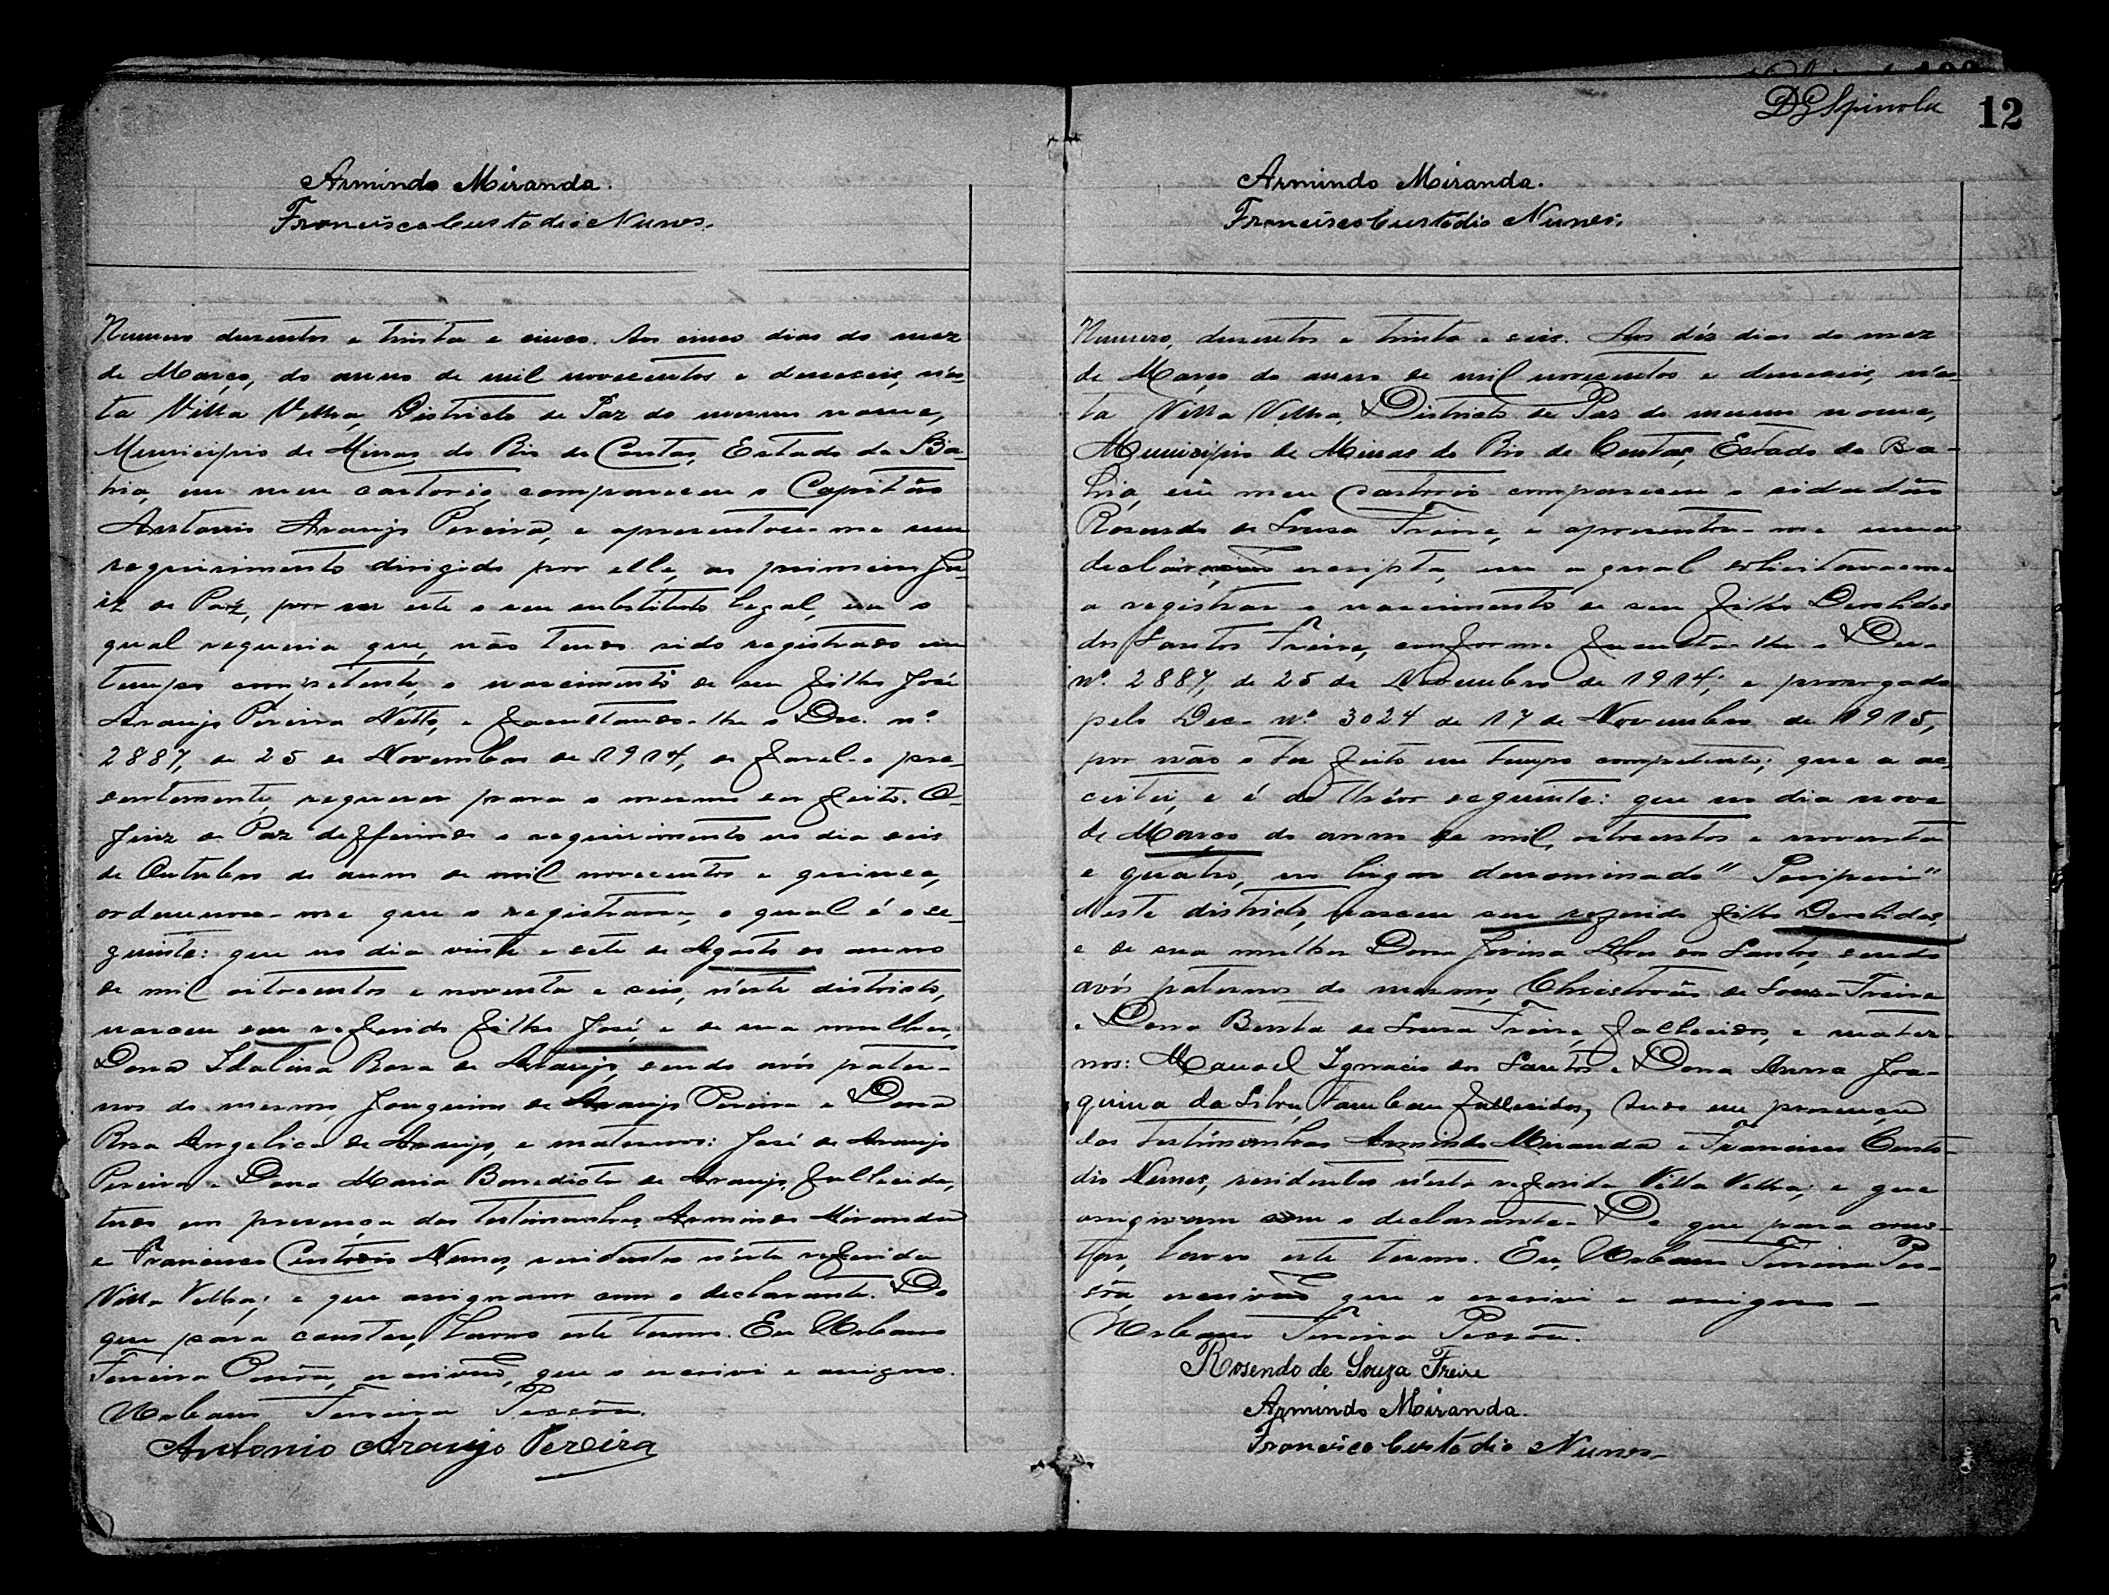 Armindo Miranda.
Francisco Custodio Nunes.
Numero duzentos e trinta e cinco. Aos cinco dias do mez
de Março, do anno de mil novecentos e dezeseis, n'es-
ta Villa Velha, Districto de Paz do mesmo nome,
Municipio de Minas do Rio de Contas, Estado da Ba-
hia, em meu cartorio, compareceu o Capitão
Antonio Araujo Pereira, e apresentou-me um
requerimento dirigido por elle, ao primeiro Ju-
iz de Paz, por ser este o seu substituto legal, em o
qual requeria que, não tendo sido registrado em
tempo competente, o nascimento de seu filho José
Araujo Pereira Netto, e facultando-lhe o Dec. nº
2887, de 25 de Novembro de 1914, de fazel-o pre-
sentemente, requerer para o mesmo ser feito. O
Juiz de Paz defferindo o requerimento no dia seis
de Outubro do anno de mil novecentos e quinze,
ordenou-me que o registrasse, o qual é o se-
guinte: que no dia vinte e sete de Agosto do anno
de mil oitocentos e noventa e seis, n'este districto,
nasceu seu referido filho José, e de sua mulher,
Dona Idalina Rosa de Araujo, sendo avós pater-
nos do mesmo, Joaquim de Araujo Pereira e Dona
Rosa Angelica de Araujo, e maternos: José de Araujo
Pereira e Dona Maria Benedicta de Araujo, fallecida,
tudo em presença das testimunhas, Armindo Miranda
e Francisco Custodio Nunes, residentes n'esta referida
Villa Velha; e que assignam com o declarante. Do
que para constar, lavro este termo. Eu Urbano
Ferreira Pessôa, escrivão, que o escrivi e assigno.
Urbano Ferreira Pessôa.
Antonio Araujo Pereira
D G Spinola 12
Armindo Miranda.
Francisco Custodio Nunes.
Numero, duzentos e trinta e seis. Aos déz dias do mez
de Março do anno de mil novecentos e dezeseis, n'es-
ta Villa Velha, Districto de Paz do mesmo nome,
Municipio de Minas do Rio de Contas, Estado da Ba-
hia, em meu Cartorio compareceu o cidadão
Rosendo de Sousa Freire, e apresentou-me uma
declaração escripta, em a qual solicitava-me
a registrar o nascimento de seu filho Deoclides
dos Santos Freire, conforme faculta-lhe o Dec.
nº 2887, de 25 de Novembro de 1914, e prorogado
pelo Dec. nº 3024 de 17 de Novembro de 1915,
por não o ter feito em tempo competente; que a ac-
ceitei, e é do theôr seguinte: que no dia nove
de Março do anno de mil, oitocentos e noventa
e quatro, no lugar denominado "Periperi"
deste districto, nasceu seu referido filho Deoclides,
e de sua mulher Dona Jovina Alves dos Santos, sendo
avós paternos do mesmo, Christovão de Souza Freire
e Dona Benta de Sousa Freire, fallecidos, e mater-
nos: Manoel Ignacio dos Santos e Dona Anna Joa-
quina da Silva, tambem fallecidos, tudo em presença
das testimunhas Armindo Miranda e Francisco Custo-
dio Nunes, residentes n'esta referida Villa Velha; e que
assignam com o declarante. Do que para cons-
tar, lavro este termo. Eu, Urbano Ferreira Pes-
sôa, escrivão que o escrivi e assigno
Urbano Ferreira Pessôa.
Rosendo de Souza Freire
Armindo Miranda.
Francisco Custodio Nunes